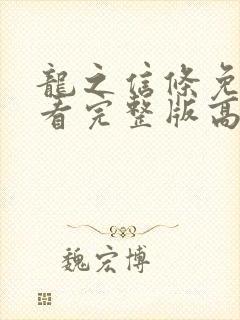 龍之信條免
看完整版高
魏宏博